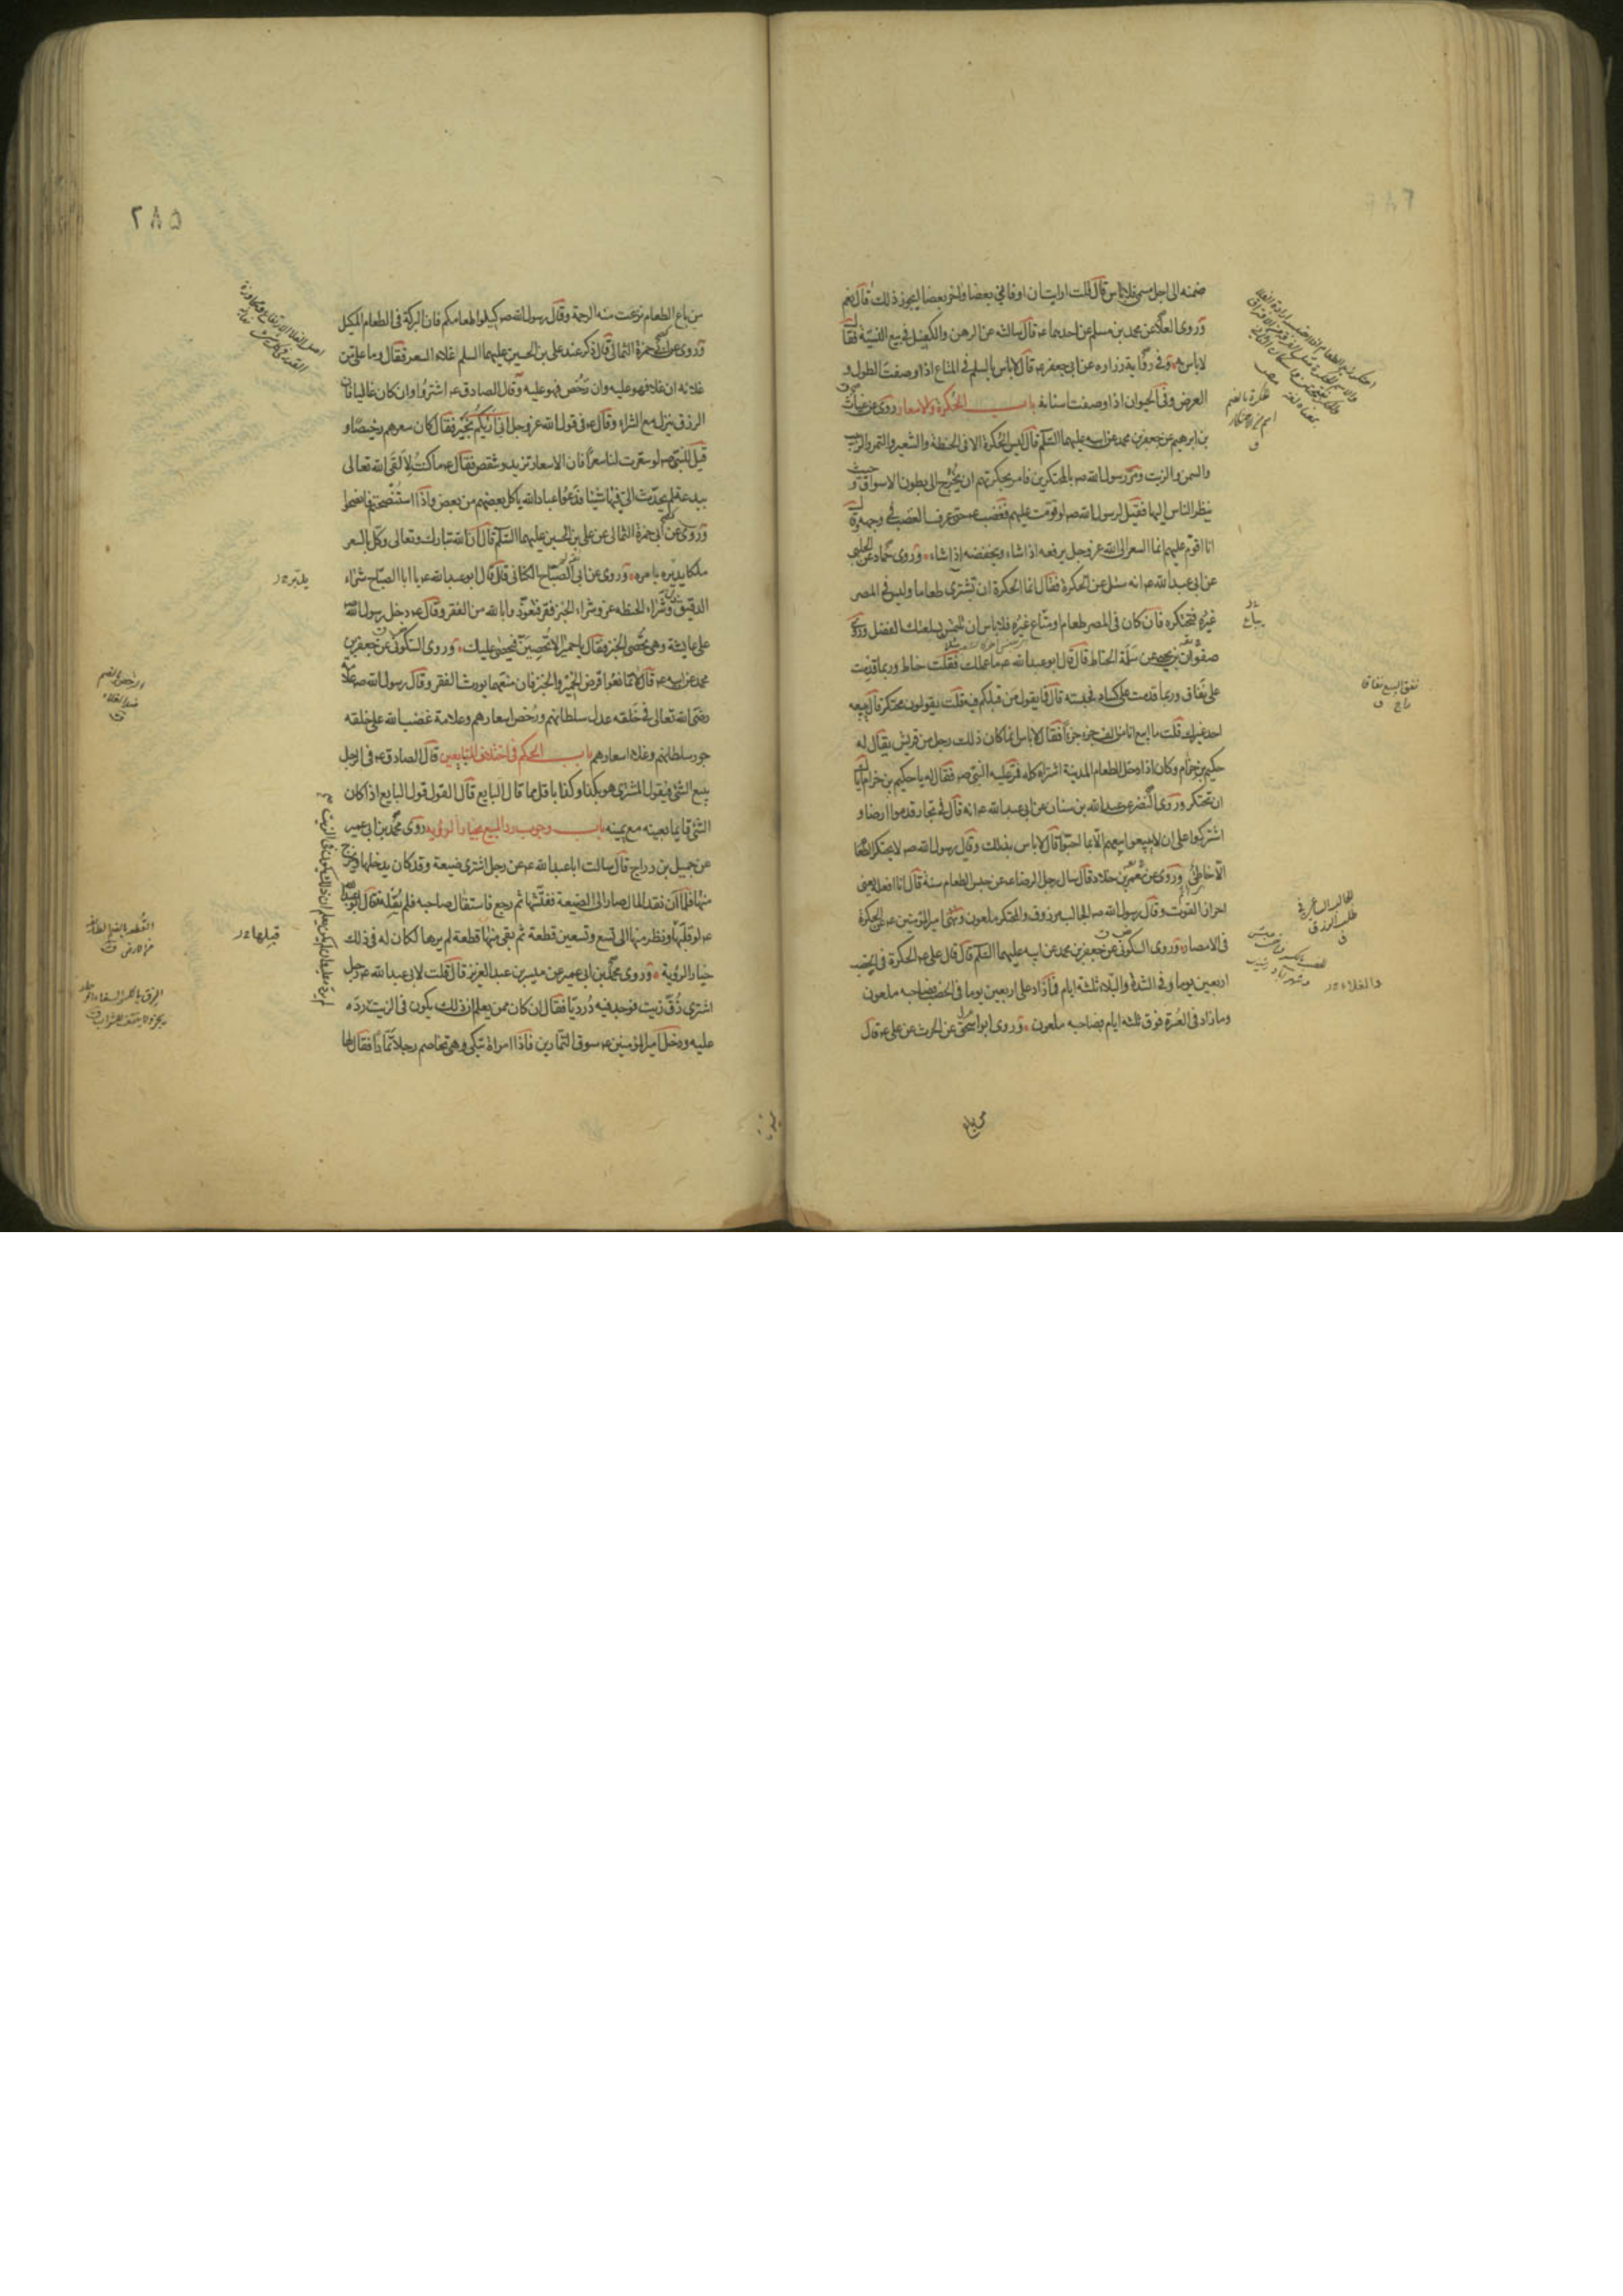 ضمنه الى اجل مسمى فلا باس قال قلت ارايت ان اوفاني بعضا واخر بعضا ايجوز ذلك قال نعم
وروى العلا عن محمد بن مسلم عن احدهما عم قال سالته عن الرهن والكفيل في بيع النسيئة فقال
لا باس به وفي رواية زراره عن ابي جعفر عم قال لا باس بالسلم في المتاع اذا وصفت الطول و
العرض وفي الحيوان اذا وصفت اسنانه باب الحكرة والاسعار روى عن غياث
بن ابرهيم عن جعفر بن محمد عن ابيه عليهما السلم قال ليس الحكرة الا في الحنطة والشعير والتمر والزبيب
والسمن والزيت ومر رسول الله صه بالمحتكرين فامر بحكرتهم ان يخرج الى بطون الاسواق و حيث
ينظر الناس اليها فقيل لرسول الله صه لو قومت عليهم فغضب عم حتى عرف الغضب في وجهه وقال
انا اقوم عليهم انما السعر الى الله عز وجل يرفعه اذا شاء ويخفضه اذا شاء وروى حماد عن الحلبي
عن ابي عبد الله عم انه سئل عن الحكرة فقال انما الحكرة ان تشترى طعاما وليس في المصر
غيره فتحتكره فان كان في المصر طعام او متاع غيره فلا باس ان تلتمس بسلعتك الفضل وروى
صفوان بن يحيى عن سلمة الحناط قال قال ابو عبد الله عم ما عملك فقلت حناط وربما قدمت
على نفاق وربما قدمت على كساد فحبسته قال فما يقول من قبلكم فيه قلت يقولون محتكر قال يبيعه
احد غيرك قلت ما ابيع انا من الف جزء جزءا فقال لا باس انما كان ذلك رجل من قريش يقال له
حكيم بن حزام وكان اذا دخل الطعام المدينة اشتراه كله فمر عليه النبي صه فقال له يا حكيم بن حزام اياك
ان تحتكر وروى النضر عن عبد الله بن سنان عن ابي عبد الله عم انه قال في تجار قدموا ارضا و
اشتركوا على ان لا يبيعوا بيعهم الا بما احبوا قال لا باس بذلك وقال رسول الله صه لا يحتكر الطعام
الا خاطئ وروى عن معمر بن خلاد قال سال رجل الرضا عم عن حبس الطعام سنة قال انا افعله يعني
احراز القوت وقال رسول الله صه الجالب مرزوق والمحتكر ملعون ونهى امير المؤمنين عم عن الحكرة
في الامصار وروى السكوني عن جعفر بن محمد عن ابيه عليهما السلم قال قال على عم الحكرة في الخصب
اربعين يوما وفي الشدة والبلاء ثلثة ايام فما زاد على اربعين يوما في الخصب فصاحبه ملعون
وما زاد في العسرة فوق ثلثه ايام فصاحبه ملعون وروى ابو اسحق عن الحرث عن على عم قال
من باع
نفق البيع نفاقا
راج ق
يباع
والغلاء
٢٨٥
من باع الطعام نزعت منه الرحمة وقال رسول الله صه كيلوا طعامكم فان البركة في الطعام المكيل
وروى عن ابي حمزة الثمالي قال ذكر عند على بن الحسين عليهما السلم غلاء السعر فقال وما على من
غلائه ان غلا فهو عليه وان رخص فهو عليه وقال الصادق عم اشتروا وان كان غاليا فان
الرزق ينزل مع الشراء وقال عم في قول الله عز وجل اني اريكم بخير فقال كان سعرهم رخيصا و
قيل للنبي صه لو سعرت لنا سعرا فان الاسعار تزيد وتنقص فقال عم ما كنت لالقى الله تعالى
ببدعة لم يحدث الي فيها شيئا فدعوا عباد الله ياكل بعضهم من بعض واذا استنصحتم فانصحوا
وروى عن ابي حمزة الثمالى عن على بن الحسين عليهما السلم قال ان الله تبارك وتعالى وكل بالسعر
ملكا يدبره بامره وروى عن ابي الصباح الكناني قال قال ابو عبد الله عم يا ابا الصباح شراء
الدقيق ذل وشراء الحنطه عز وشراء الخبز فقر فنعوذ بالله من الفقر وقال عم دخل رسول الله صه
على عايشة وهي تحصى الخبز فقال يا حميرا لا تحصين فيحصى عليك وروى السكوني عن جعفر بن
محمد عن ابيه عم قال لا تمانعوا قرض الخمير والخبز فان منعهما يورث الفقر وقال رسول الله صه علامة
رضى الله تعالى في خلقه عدل سلطانهم ورخص اسعارهم وعلامة غضب الله على خلقه
جور سلطانهم وغلاء اسعارهم باب الحكم في اختلاف المتبايعين قال الصادق عم في الرجل
يبيع الشئ فيقول المشترى هو بكذا وكذا باقل مما قال البايع قال القول قول البايع اذا كان
الشئ قايما بعينه مع يمينه باب وجوب رد المبيع بخيار الرؤيه روى محمد بن ابي عمير
عن جميل بن دراج قال سالت ابا عبد الله عم عن رجل اشترى ضيعة وقد كان يدخلها ويخرج
منها فلما ان نقد المال صار الى الضيعة ففتشها ثم رجع فاستقال صاحبه فلم يقله فقال ابو عبد الله
عم لو قلبها ونظر منها الى تسع وتسعين قطعة ثم بقى منها قطعة لم يرها لكان له في ذلك
خيار الرؤية وروى محمد بن ابي عمير عن ميسر بن عبد العزيز قال قلت لابي عبد الله عم رجل
اشترى زق زيت فوجد فيه درديا فقال ان كان ممن يعلم ان ذلك يكون في الزيت رده
عليه ودخل امير المؤمنين عم سوق التمارين فاذا امراة تبكى وهي تخاصم رجلا تمارا فقال لها
الرخص بالضم
ضد الغلاء
ق